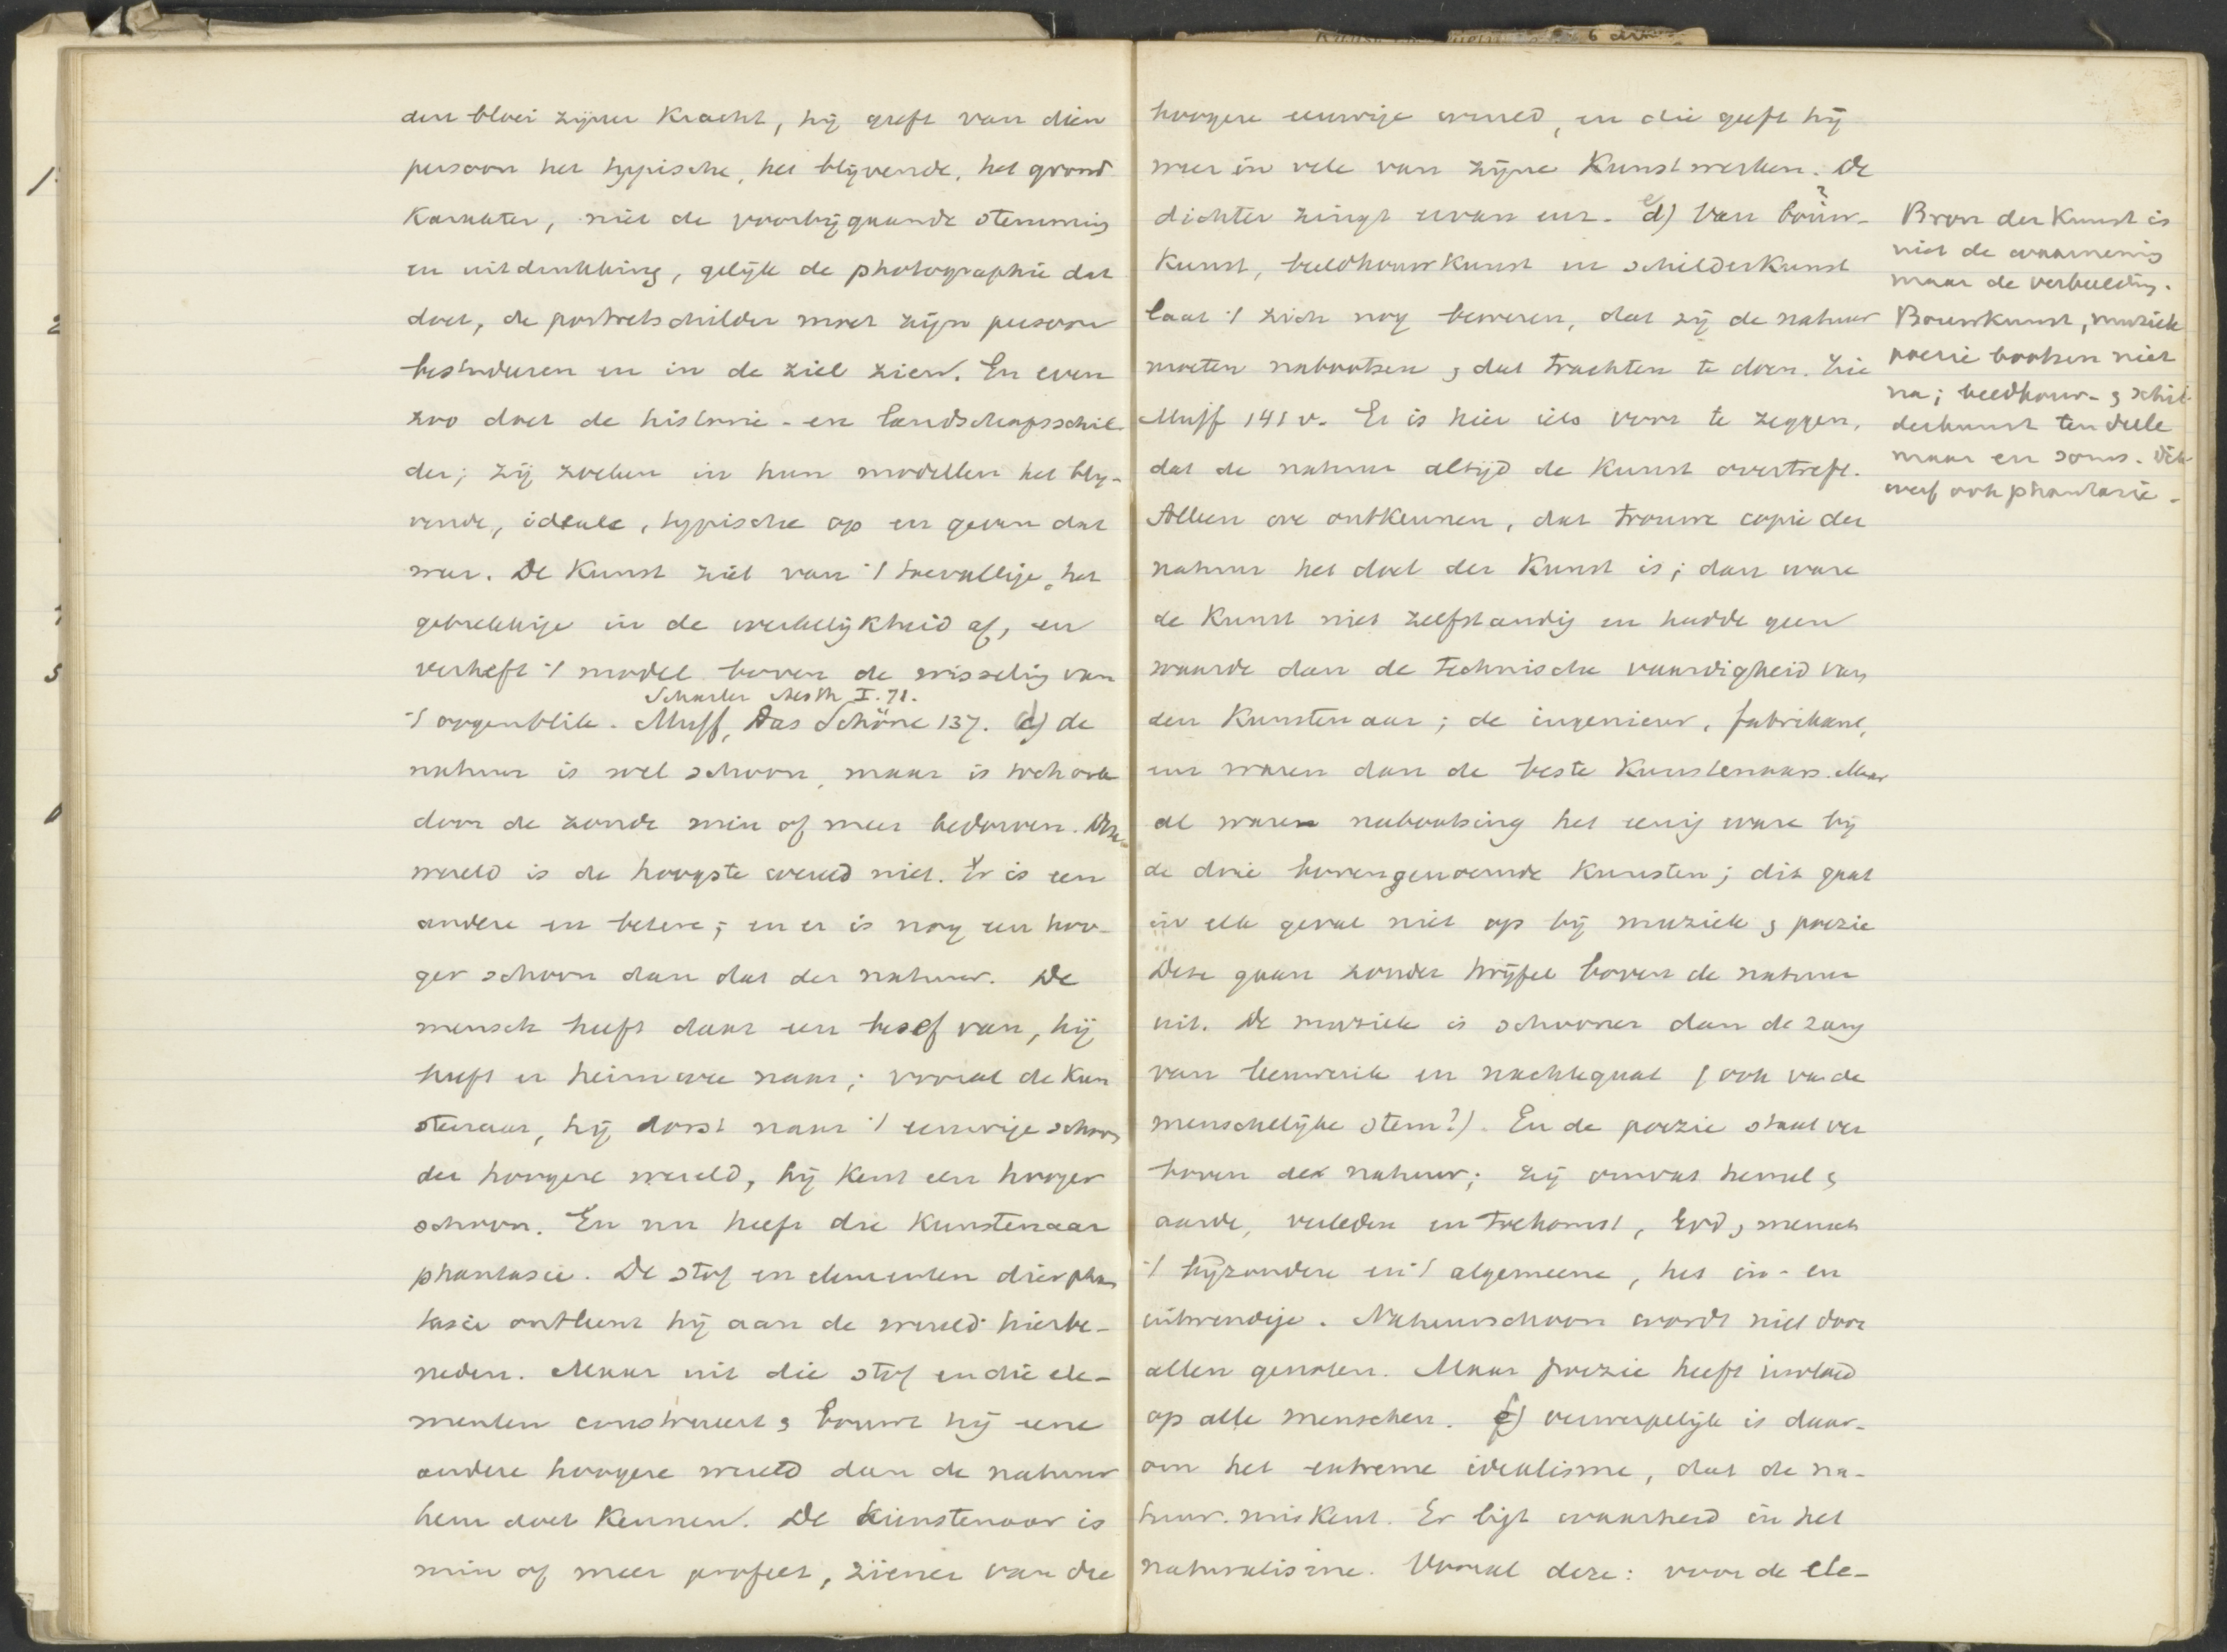 den bloei zijner Kracht, hij geeft van dien
persoon het typische, het blijvende, het grond
Karakter, niet de voorbijgaande stemming
en uitdrukking, gelijk de photographie dat
doet, de portretschilder moet zijn persoon
bestudeeren en in de ziel zien. En even
zoo doet de historie- en landschapsschil-
der; zij zoeken in hun modellen het blij-
vende, ideale, typische op en geven dat
weer. De Kunst ziet van 't toevallige, het
gebrekkige in de werkelijkheid af, en
verheft 't model boven de wisseling van
Schasler Aesth I. 71.
't oogenblik. Muff, Das Schöne 137. d) de
natuur is wel schoon, maar is toch ook
door de zonde min of meer bedorven. Deze
wereld is de hoogste wereld niet. Er is een
andere en betere; en er is nog een hoo-
ger schoon dan dat der natuur. De
mensch heeft daar een besef van, hij
heeft er heimwee naar; vooral de Kun
stenaar, hij dorst naar 't eeuwige schoon
der hoogere wereld, hij kent een hooger
schoon. En nu heeft die Kunstenaar
phantasie. De stof en elementen dier phan
tasie ontleent hij aan de wereld hierbe-
neden. Maar uit die stof en die ele-
menten construeert & bouwt hij eene
andere hoogere wereld dan de natuur
hem doet kennen. De kunstenaar is
min of meer profeet, ziener van die
hoogere eeuwige wereld, en die geeft hij
weer in vele van zijne Kunstwerken. De
dichter zingt ervan enz. e) Van bouw-
Kunst, beeldhouwkunst en schilderkunst
laat 't zich nog beweren, dat zij de natuur
moeten nabootsen & dat trachten te doen. Zie
Muff 141 v. Er is hier iets voor te zeggen,
dat de natuur altijd de Kunst overtreft.
Alleen we ontkennen, dat trouwe copie der
natuur het doel der Kunst is; dan ware
de Kunst niet zelfstandig en hadde geen
waarde dan de technische vaardigheid van
den Kunstenaar; de ingenieur, fabrikant,
enz waren dan de beste Kunstenaars. Maar
al ware nabootsing het eenig ware bij
de drie bovengenoemde Kunsten; dit gaat
in elk geval niet op bij muziek & poezie
Deze gaan zonder twijfel boven de natuur
uit. De muziek is schooner dan de zang
van leeuwerik en nachtegaal (ook van de
menschelijke stem?). En de poezie staat ver
boven de natuur; zij omvat hemel &
aarde, verleden en toekomst, God & mensch
't bijzondere en 't algemeene, het in- en
uitwendige. Natuurschoon wordt niet door
allen genoten. Maar poezie heeft invloed
op alle menschen. f) verwerpelijk is daar-
om het extreme idealisme, dat de na-
tuur miskent. Er ligt waarheid in het
naturalisme. Vooral deze: voor de ele-
Bron der Kunst is
niet de waarneming
maar de verbeelding.
Bouwkunst, muziek
poezie bootsen niet
na; beeldhouw- & schil-
derkunst ten deele
maar en soms.
ook phantasie.